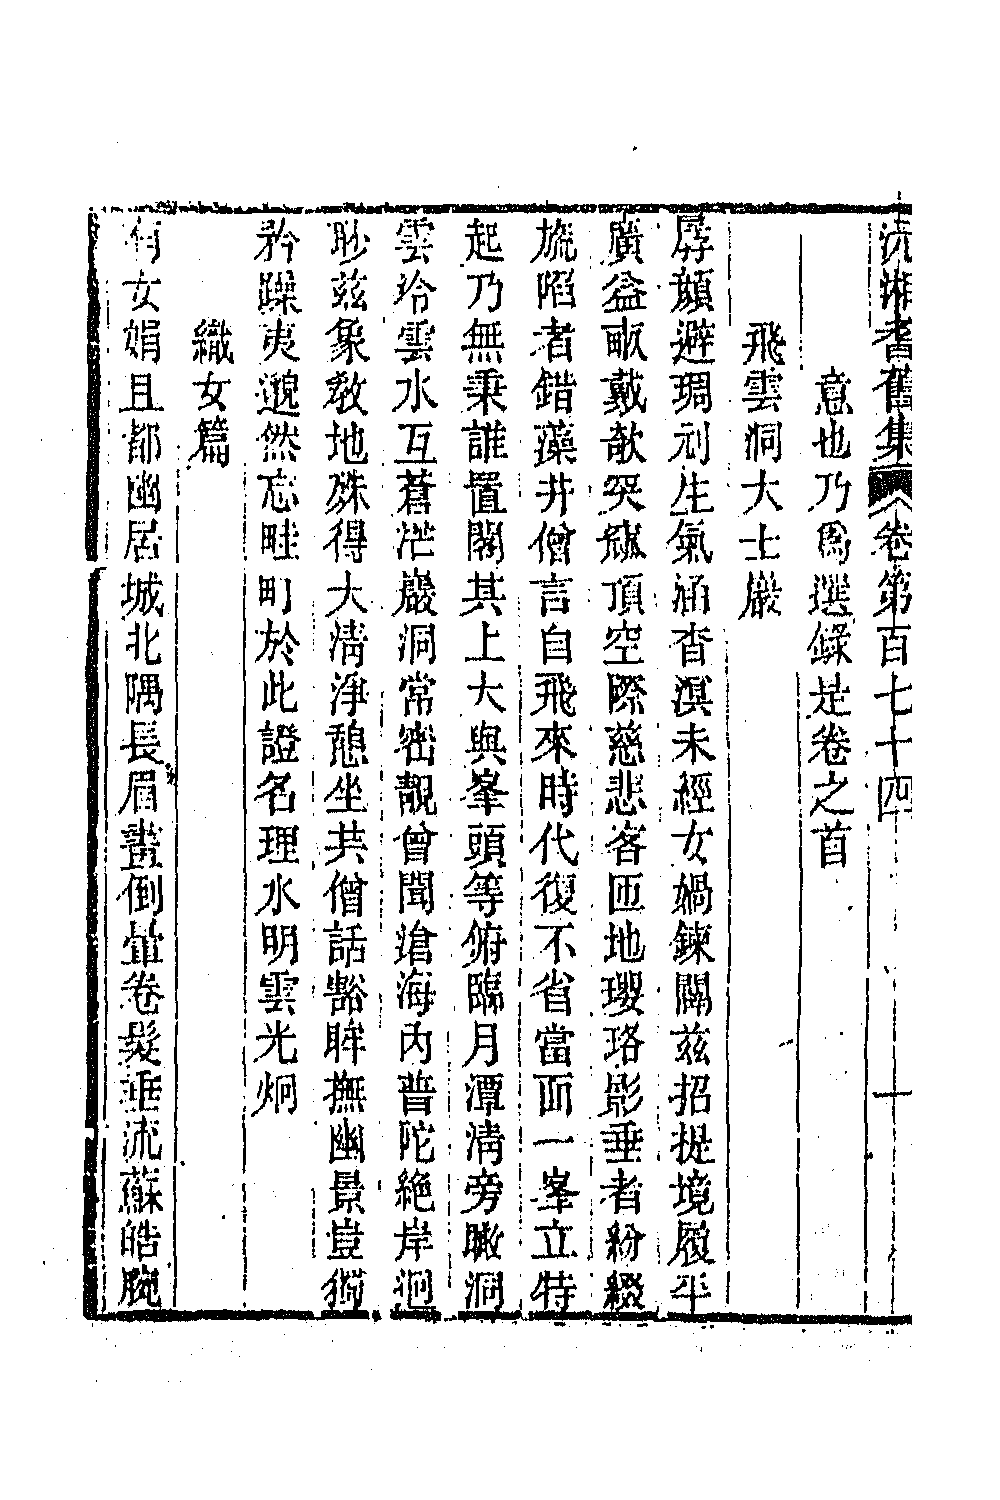 沅湘耆舊集 卷第百七十四 一
意也乃爲選錄是卷之首
飛雲洞大士巖
孱顏避琱刓生氣涵杳溟未經女媧鍊闢茲招提境履平
廣益畝戴欹突旒頂空際慈悲客匝地瓔珞影垂者紛綴
旒陷者錯藻井僧言自飛來時代復不省當面一峯立特
起乃無秉誰置閣其上大與峯頭等俯臨月潭清旁瞰洞
雲冷雲水互蒼茫巖洞常密靚曾聞滄海內普陀絶岸迥
眇茲象敎地殊得大淸淨憩坐共僧話豁眸撫幽景豈獨
矜躁夷邈然忘畦町於此證名理水明雲光炯
織女篇
有女娟且都幽居城北隅長眉畫倒暈卷髮垂流蘇皓腕